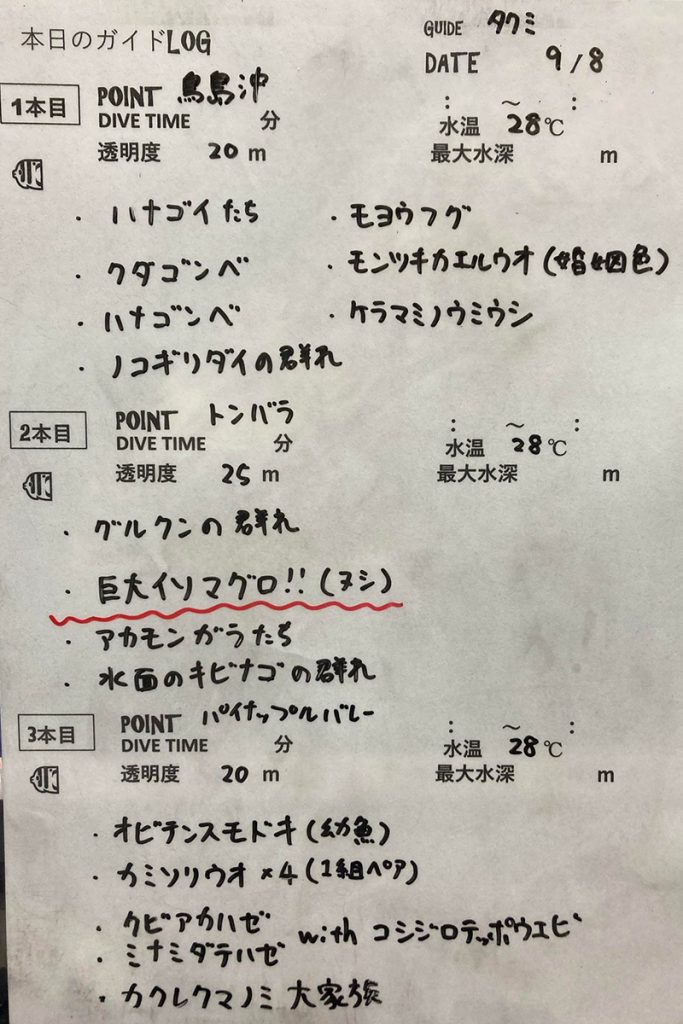 本日のガイドLOG
GUIDE タクミ
DATE 9/8
1本目 POINT 鳥島沖 : ～ :
DIVE TIME 分 水温 28℃
透明度 20 m 最大水深 m
・ハナゴイたち ・モヨウフグ
・クダゴンベ ・モンツキカエルウオ(婚姻色)
・ハナゴンベ ・ケラマミノウミウシ
・ノコギリダイの群れ
2本目 POINT トンバラ : ～ :
DIVE TIME 分 水温 28℃
透明度 25 m 最大水深 m
・グルクンの群れ
・巨大イソマグロ!!(ヌシ)
・アカモンガラたち
・水面のキビナゴの群れ
3本目 POINT パイナップルバレー : ～ :
DIVE TIME 分 水温 28℃
透明度 20 m 最大水深 m
・オビテンスモドキ(幼魚)
・カミソリウオ×4(1組ペア)
・クビアカハゼ
・ミナミダテハゼ with コシジロテッポウエビ
・カクレクマノミ大家族